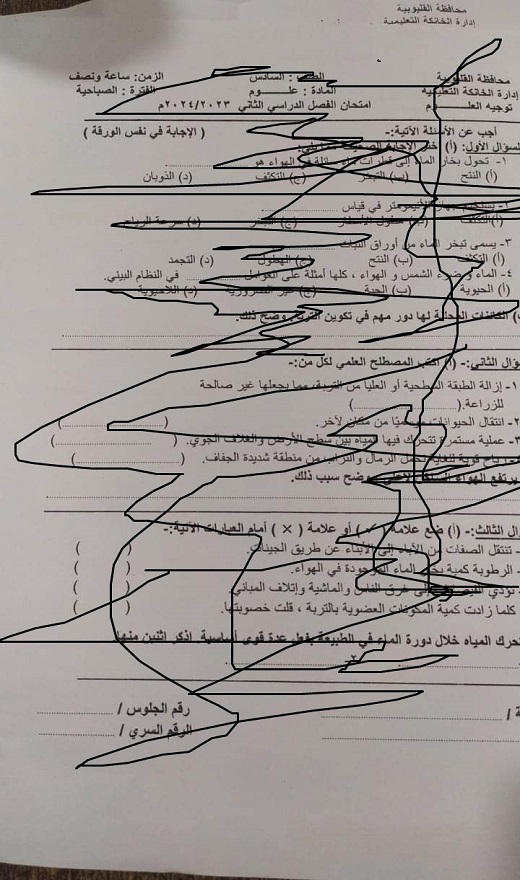 محافظة القليوبية
إدارة الخانكة التعليمية
محافظة القليوبية
الصف : السادس
الزمن: ساعة ونصف
إدارة الخانكة التعليمية
المادة : علـــــوم
الفترة : الصباحية
توجيه العلـــــوم
امتحان الفصل الدراسي الثاني ٢٠٢٤/٢٠٢٣م
أجب عن الأسئلة الآتية:-
( الإجابة في نفس الورقة )
السؤال الأول: (أ)
١- تحول بخار الماء إلى قطرات ماء سائلة في الهواء هو
(أ) النتح (ب) التبخر (ج) التكثف (د) الذوبان
في قياس
(د) سرعة الرياح
٣- يسمى تبخر الماء من أوراق النبات
(أ) التكثف (ب) النتح (ج) الهطول (د) التجمد
٤- الماء وضوء الشمس و الهواء ، كلها أمثلة على العوامل في النظام البيئي.
(أ) الحيوية (ب) الحية (ج) غير الضرورية (د) اللاحيوية
الكائنات المحللة لها دور مهم في تكوين التربة، وضح ذلك.
ؤال الثاني:- (أ) اكتب المصطلح العلمي لكل من:-
١- إزالة الطبقة السطحية أو العليا من التربة، مما يجعلها غير صالحة
للزراعة.( )
٢- انتقال الحيوانات من مكان لآخر. ( )
٣- عملية مستمرة تتحرك فيها المياه بين سطح الأرض والغلاف الجوي. ( )
الرمال والتراب من منطقة شديدة الجفاف. ( )
يرتفع الهواء وضح سبب ذلك.
ال الثالث:- (أ) ضع علامة (✓) أو علامة ( × ) أمام العبارات الآتية:-
- تنتقل الصفات من الآباء إلى الأبناء عن طريق الجينات. ( )
- الرطوبة كمية بخار الماء الموجودة في الهواء. ( )
- تؤدي إلى غرق الناس والماشية وإتلاف المباني. ( )
كلما زادت كمية المكونات العضوية بالتربة ، قلت خصوبتها. ( )
تحرك المياه خلال دورة الماء في الطبيعة بفعل عدة قوى أساسية. اذكر اثنين منها.
٢-
رقم الجلوس /
الرقم السري /